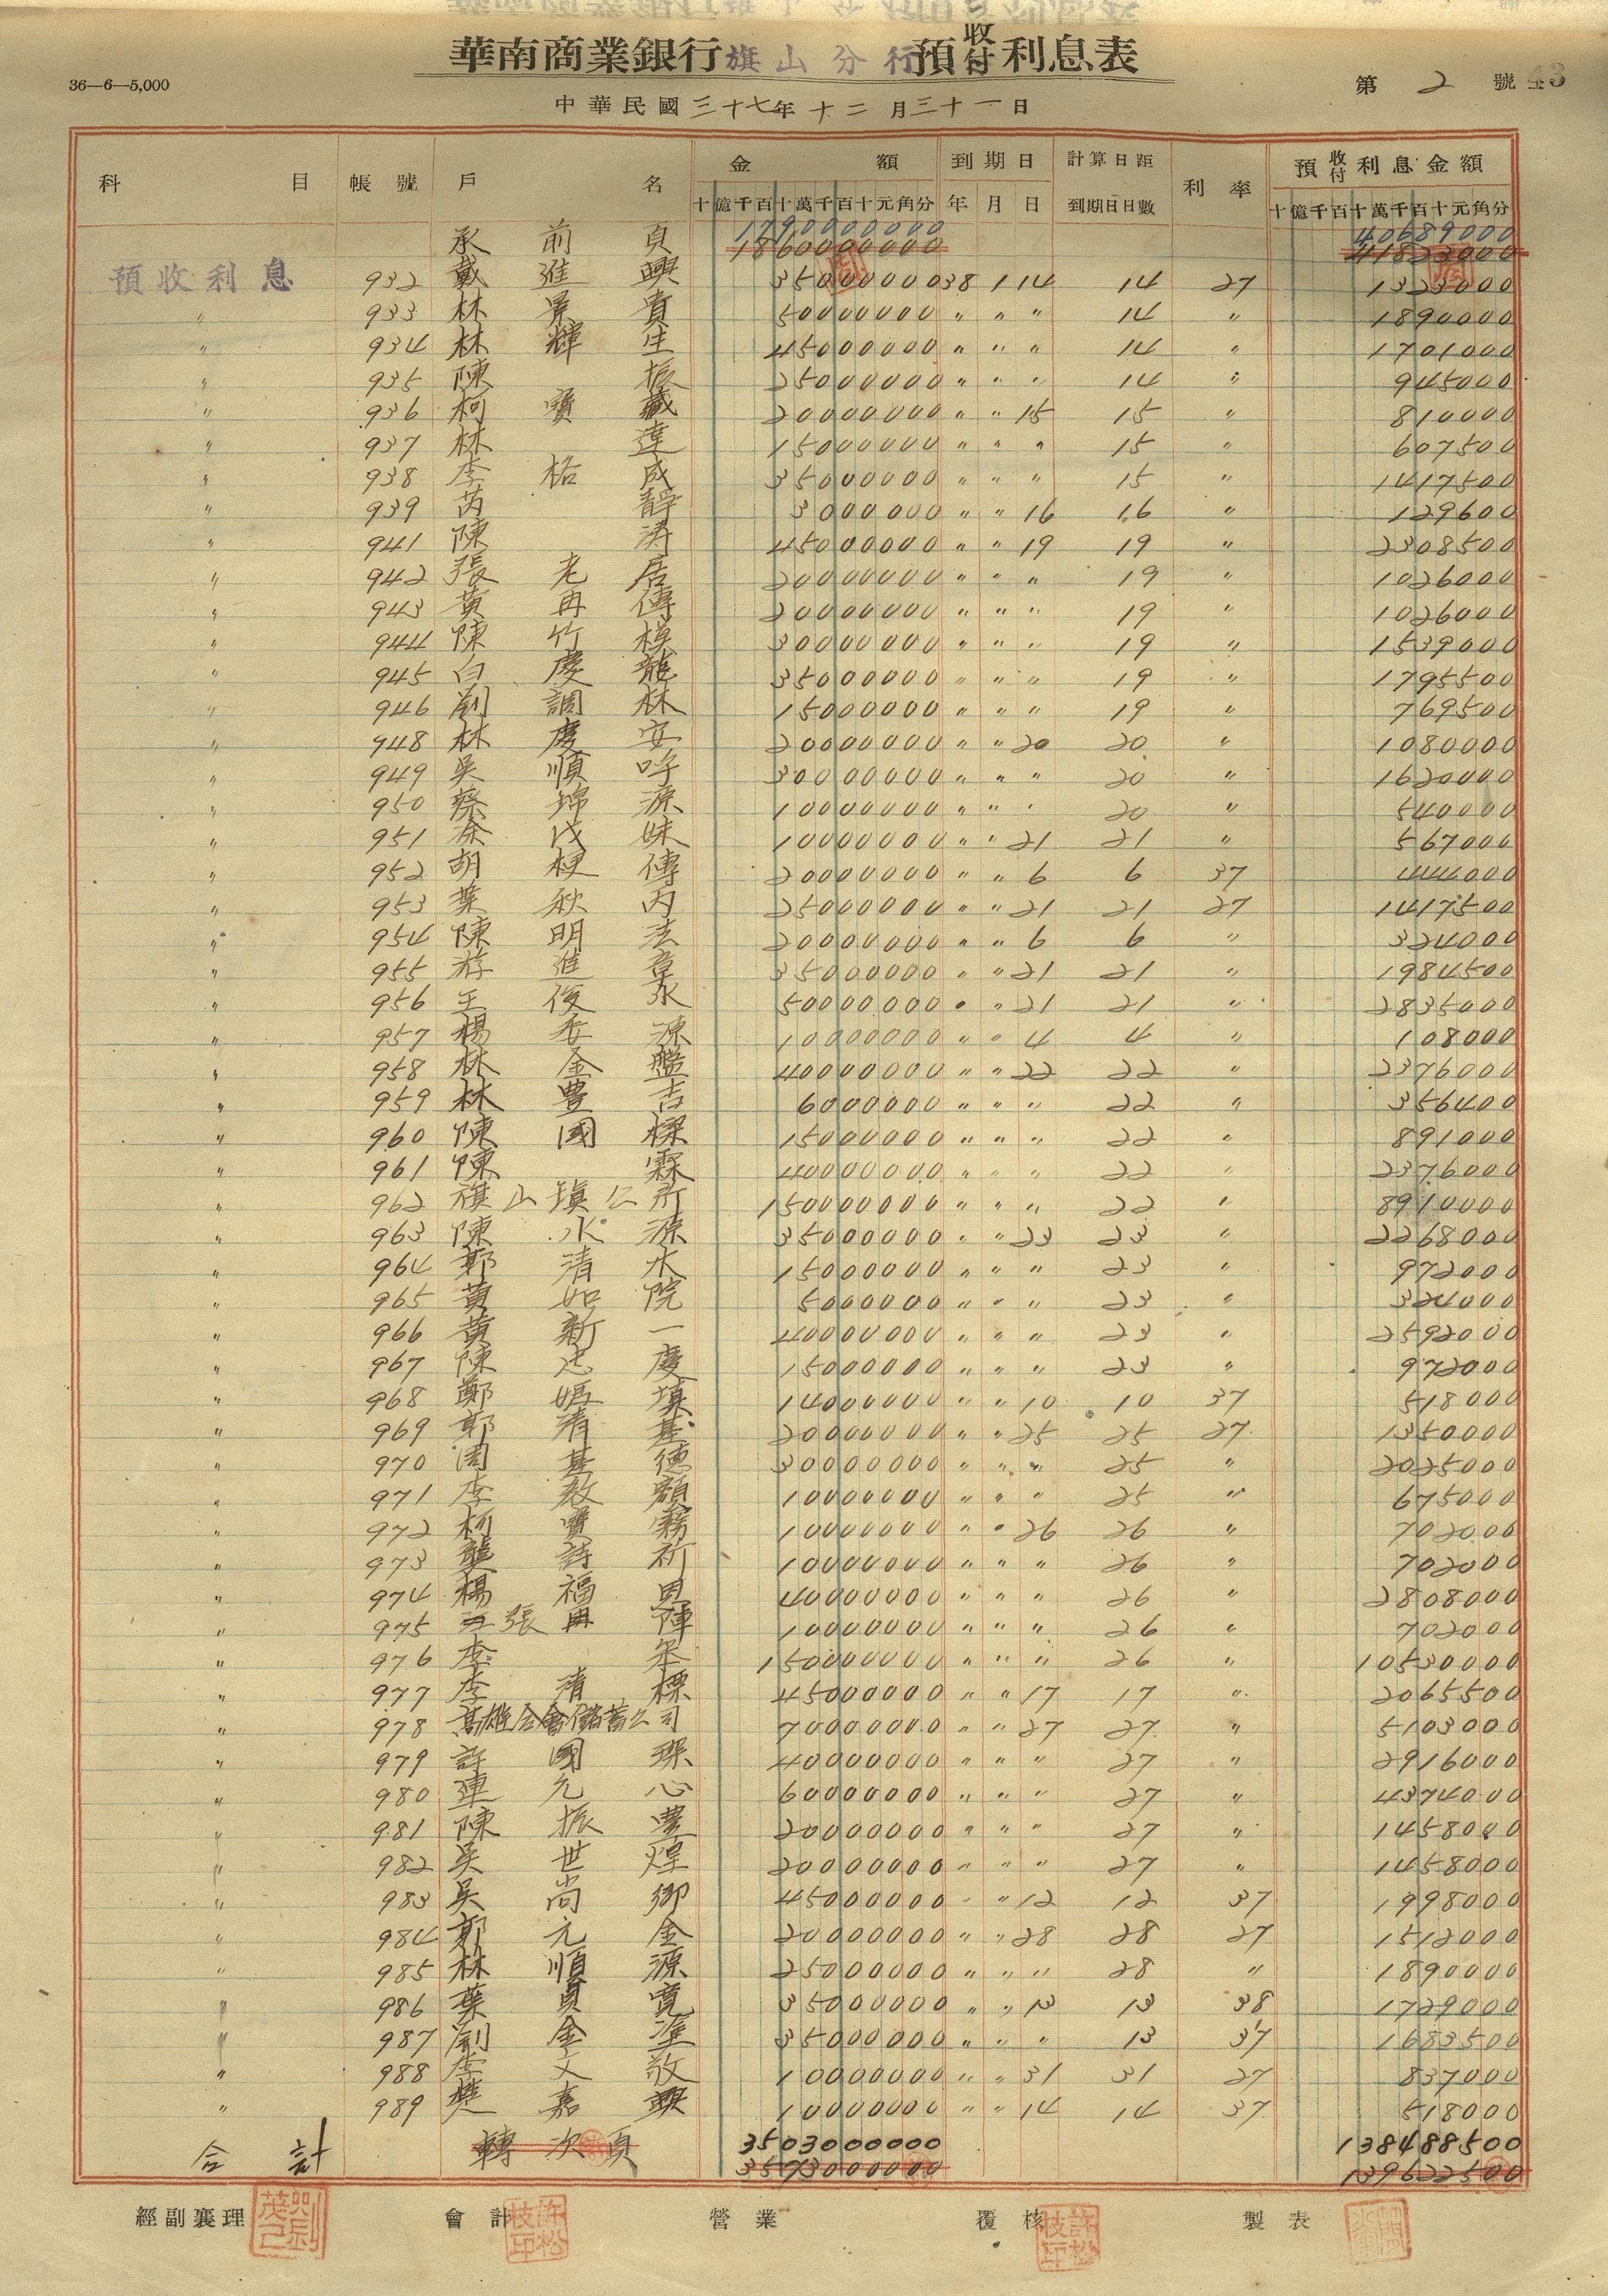 華南商業銀行旗山分行預收付利息表
36—6—5,000
第 2 號
43
中華民國三十七年十二月三十一日
科目 帳號 戶名 金額 到期日 計算日距到期日日數 利率 預收付利息金額
十億千百十萬千百十元角分 年 月 日 十億千百十萬千百十元角分
承前頁 1790000000 40689000
1860000000 41823000
預收利息 932 戴進興 35000000 38 1 14 14 27 1323000
〃 933 林景貴 50000000 〃 〃 〃 14 〃 1890000
〃 934 林輝生 45000000 〃 〃 〃 14 〃 1701000
〃 935 陳振 25000000 〃 〃 〃 14 〃 945000
〃 936 柯寶藏 20000000 〃 〃 15 15 〃 810000
〃 937 林達 15000000 〃 〃 〃 15 〃 607500
〃 938 李格成 35000000 〃 〃 〃 15 〃 1417500
〃 939 芮靜 3000000 〃 〃 16 16 〃 129600
〃 941 陳涛 45000000 〃 〃 19 19 〃 2308500
〃 942 張老居 20000000 〃 〃 〃 19 〃 1026000
〃 943 黃再傳 20000000 〃 〃 〃 19 〃 1026000
〃 944 陳竹模 30000000 〃 〃 〃 19 〃 1539000
〃 945 白慶龍 35000000 〃 〃 〃 19 〃 1795500
〃 946 劉調林 15000000 〃 〃 〃 19 〃 769500
〃 948 林慶安 20000000 〃 〃 20 20 〃 1080000
〃 949 吳順 30000000 〃 〃 〃 20 〃 1620000
〃 950 蔡錦源 10000000 〃 〃 〃 20 〃 540000
〃 951 涂戊妹 10000000 〃 〃 21 21 〃 567000
〃 952 胡梗傳 20000000 〃 〃 6 6 37 444000
〃 953 葉秋丙 25000000 〃 〃 21 21 27 1417500
〃 954 陳明法 20000000 〃 〃 6 6 〃 324000
〃 955 游進章 35000000 〃 〃 21 21 〃 1984500
〃 956 王俊永 50000000 〃 〃 21 21 〃 2835000
〃 957 楊添源 10000000 〃 〃 4 4 〃 108000
〃 958 林金盤 40000000 〃 〃 22 22 〃 2376000
〃 959 林豊吉 6000000 〃 〃 〃 22 〃 356400
〃 960 陳國樑 15000000 〃 〃 〃 22 〃 891000
〃 961 陳霖 40000000 〃 〃 〃 22 〃 2376000
〃 962 旗山鎮公所 150000000 〃 〃 〃 22 〃 8910000
〃 963 陳水源 35000000 〃 〃 23 23 〃 2268000
〃 964 鄭清水 15000000 〃 〃 〃 23 〃 972000
〃 965 黃如院 5000000 〃 〃 〃 23 〃 324000
〃 966 黃新一 40000000 〃 〃 〃 23 〃 2592000
〃 967 陳志慶 15000000 〃 〃 〃 23 〃 972000
〃 968 鄭媽填 14000000 〃 〃 10 10 37 518000
〃 969 郭清基 20000000 〃 〃 25 25 27 1350000
〃 970 周基德 30000000 〃 〃 〃 25 〃 2025000
〃 971 李教額 10000000 〃 〃 〃 25 〃 675000
〃 972 柯寶霧 10000000 〃 〃 26 26 〃 702000
〃 973 龔詩祈 10000000 〃 〃 〃 26 〃 702000
〃 974 楊福恩 40000000 〃 〃 〃 26 〃 2808000
〃 975 張再陣 10000000 〃 〃 〃 26 〃 702000
〃 976 李 150000000 〃 〃 〃 26 〃 10530000
〃 977 李清標 45000000 〃 〃 17 17 〃 2065500
〃 978 高雄合會儲蓄公司 70000000 〃 〃 27 27 〃 5103000
〃 979 許國琛 40000000 〃 〃 〃 27 〃 2916000
〃 980 連允心 60000000 〃 〃 〃 27 〃 4374000
〃 981 陳振豊 20000000 〃 〃 〃 27 〃 1458000
〃 982 吳世煌 20000000 〃 〃 〃 27 〃 1458000
〃 983 吳尚卿 45000000 〃 〃 12 12 37 1998000
〃 984 郭元金 20000000 〃 〃 28 28 27 1512000
〃 985 林順源 25000000 〃 〃 〃 28 〃 1890000
〃 986 葉貝寬 35000000 〃 〃 13 13 38 1729000
〃 987 劉金溼 35000000 〃 〃 〃 13 37 1683500
〃 988 李文敬 10000000 〃 〃 31 31 27 837000
〃 989 樊嘉興 10000000 〃 〃 14 14 37 518000
合計 轉次頁 3503000000 138488500
3573000000 139622500
經副襄理 會計 營業 覆核 製表
許松枝印 許松枝印